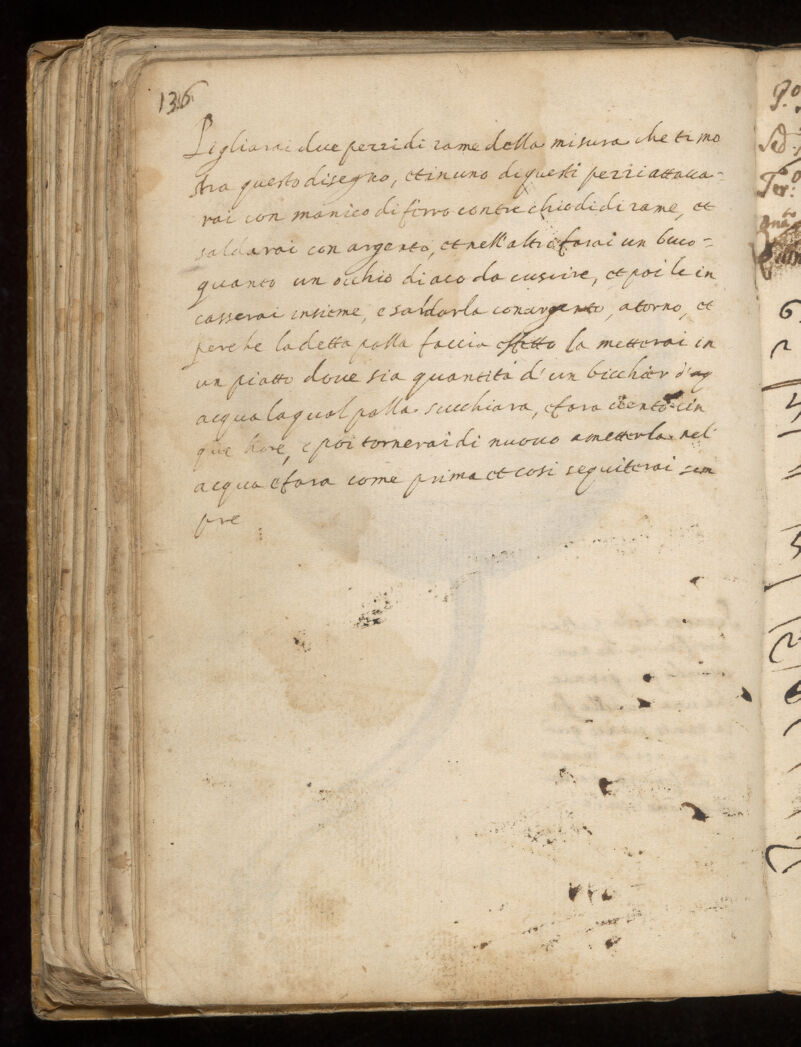 136
Pigliarai due pezzi di rame della misura che ti mo
stra questo disegno, et in uno di questi pezzi attaca=
rai con manico di ferro con tre chiodi di rame, et
saldarai con argento, et nell'altro farai un buco=
quanto un ochio di aco da cuscire, et poi le in
casserai insieme, e saldarla con argento, atorno, et
perche la detta palla faccia effetto la metterai in
un piatto dove sia quantità d'un bicchier d'
acqua la qual palla succhiara, e fara vento cin
que hore, e poi tornerai di nuovo a metterla nel
acqua e fara come prima et cosi seguiterai sem
pre
P.º
6